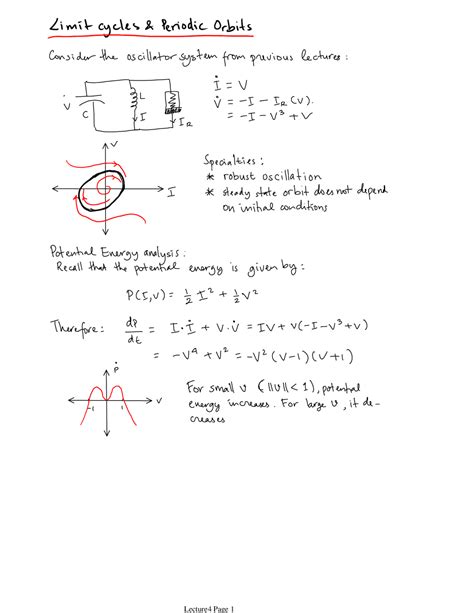 Limit cycles & Periodic Orbits
Consider the oscillator system from previous lectures:
İ = V
V̇ = -I - I_R (V).
= -I - V³ + V
+
V
-
C
L
I
I_R
V
I
Specialties:
* robust oscillation
* steady state orbit does not depend
on initial conditions
Potential Energy analysis:
Recall that the potential energy is given by:
P(I,V) = 1/2 I² + 1/2 V²
Therefore: dP/dt = I·İ + V·V̇ = IV + V(-I-V³+V)
= -V⁴ + V² = -V² (V-1)(V+1)
Ṗ
-1
1
V
For small v (||v|| < 1), potential
energy increases. For large v, it de-
creases
Lecture4 Page 1